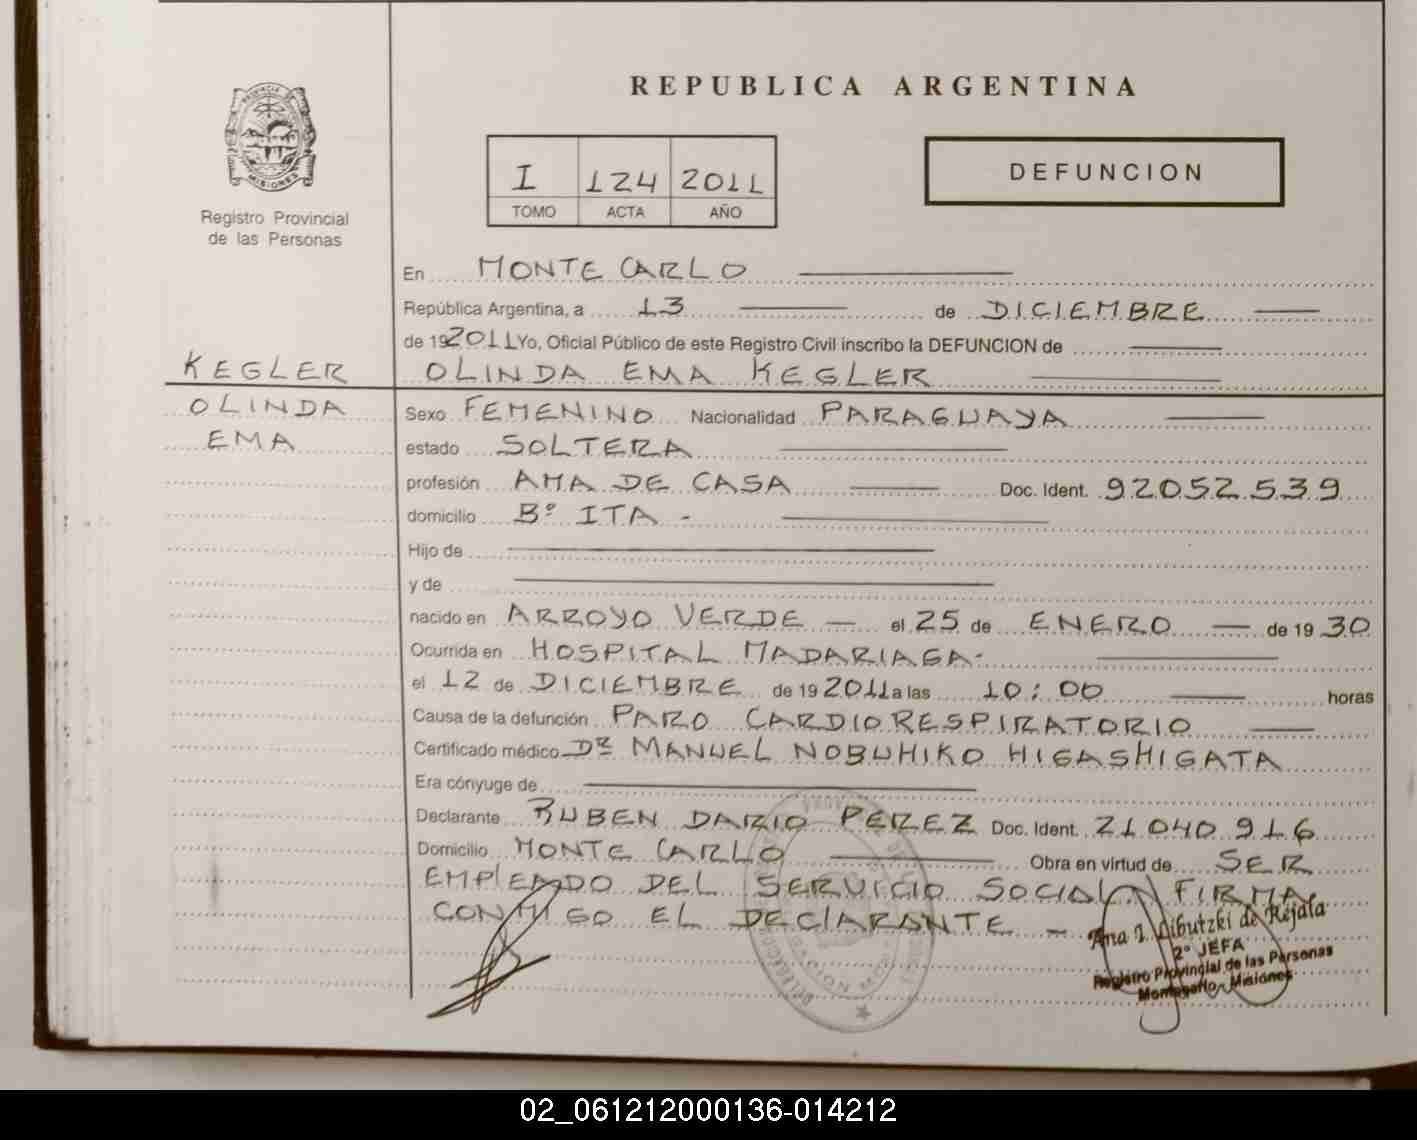 REPUBLICA ARGENTINA
PROVINCIA DE
MISIONES
Registro Provincial
de las Personas
I 124 2011
TOMO ACTA AÑO
DEFUNCION
En MONTE CARLO
República Argentina, a 13 de DICIEMBRE
de 192011 Yo, Oficial Público de este Registro Civil inscribo la DEFUNCION de
KEGLER
OLINDA
EMA
OLINDA EMA KEGLER
Sexo FEMENINO Nacionalidad PARAGUAYA
estado SOLTERA
profesión AMA DE CASA Doc. Ident. 92052539
domicilio Bº ITA -
Hijo de
y de
nacido en ARROYO VERDE — el 25 de ENERO — de 19 30
Ocurrida en HOSPITAL MADARIAGA-
el 12 de DICIEMBRE de 19 2011 a las 10:00 horas
Causa de la defunción PARO CARDIORESPIRATORIO
Certificado médico Dr MANUEL NOBUHIKO HIGASHIGATA
Era cónyuge de
Declarante RUBEN DARIO PEREZ Doc. Ident. 21040916
Domicilio MONTE CARLO Obra en virtud de SER
EMPLEADO DEL SERVICIO SOCIAL. FIRMA
CONMIGO EL DEClARANTE -
Ana I. Libutzki de Rejala
2º JEFA
Registro Provincial de las Personas
Montecarlo - Misiones
02_061212000136-014212